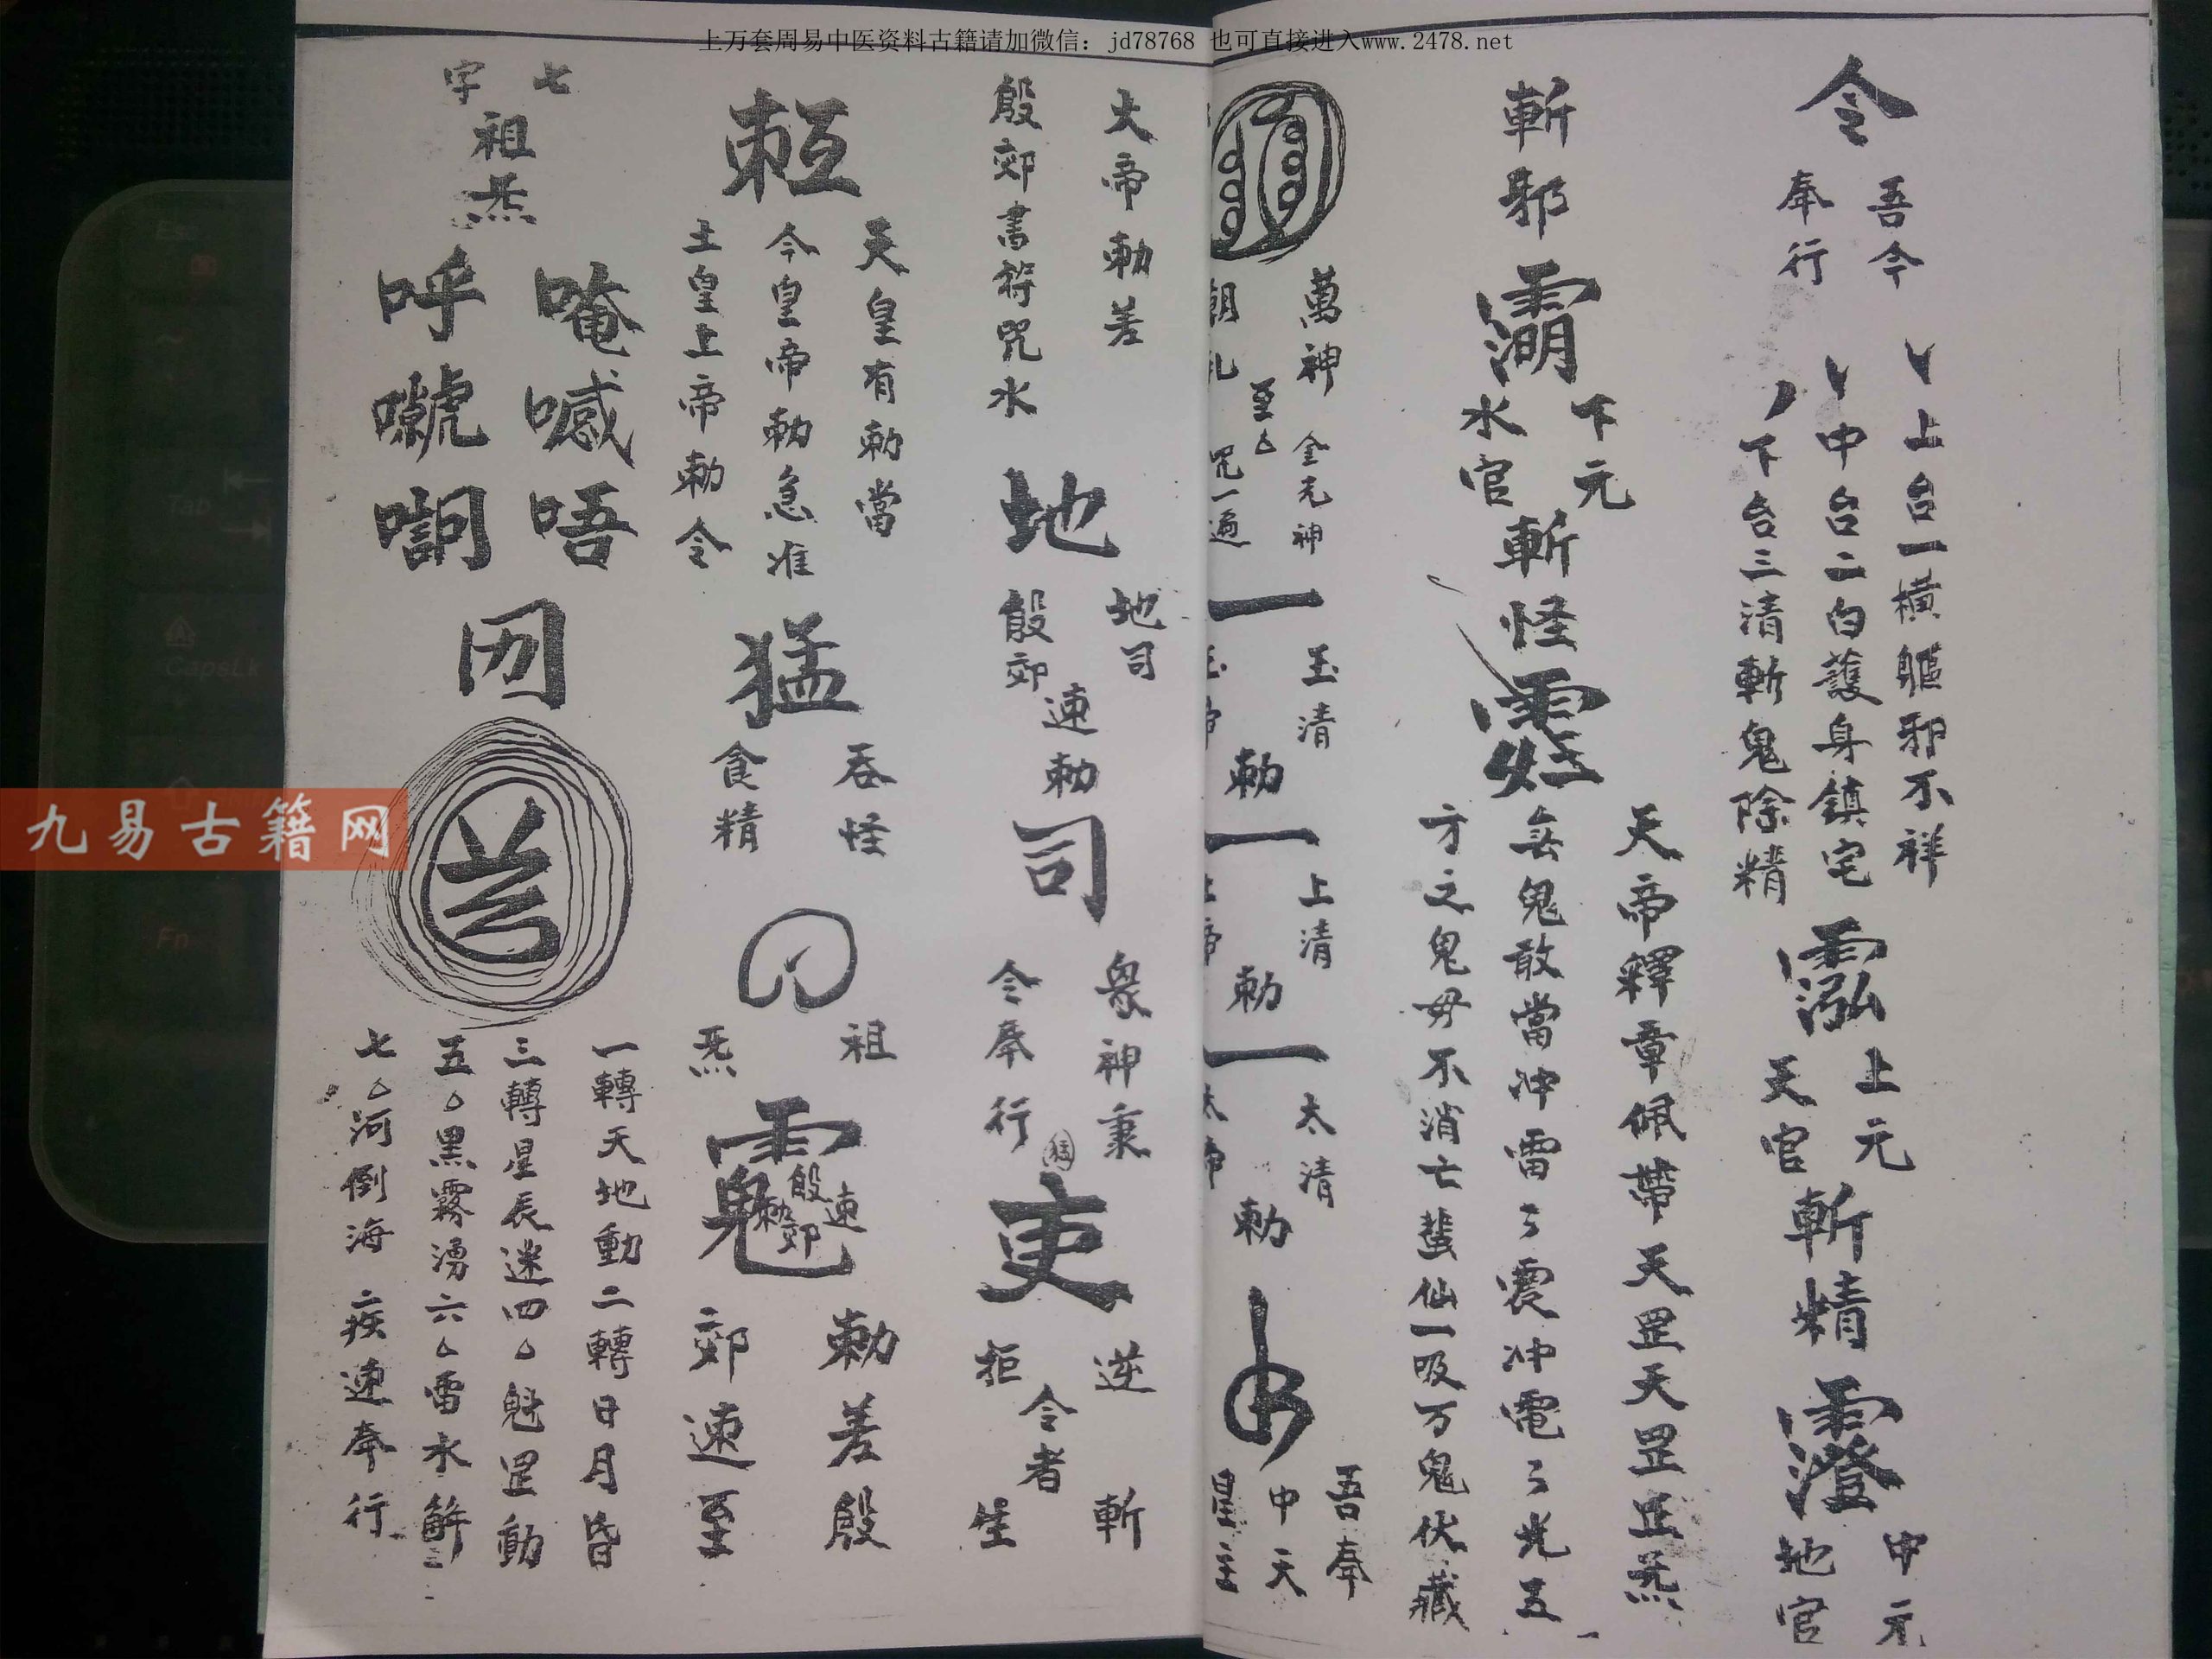 上万套周易中医资料古籍请加微信：jd78768 也可直接进入www.2478.net
九易古籍网
令
吾今
奉行
上台一橫驅邪不祥
中台二白護身鎮宅
下台三清斬鬼除精
泓
上元
天官
斬精
澄
中元
地官
斬邪
下元
水官
斬怪
天帝釋章佩帶天罡天罡正炁
無鬼敢當沖雷々震沖電々光五
方之鬼毋不消亡蛮仙一吸万鬼伏藏
萬神
朝礼
金元神
咒一遍
一
玉清
玉帝
勅
一
上清
上帝
勅
一
太清
太帝
勅
吾奉
中天
星主
大帝勅差
殷郊書符咒水
地
地司
殷郊
速勅
司
眾神秉
令奉行
吏
逆
拒
令者
斬
生
天皇有勅當
今皇帝勅急准
土皇上帝勅令
猛
吞怪
食精
祖
炁
速
殷郊
勅差殷
郊速至
七
字
祖炁
唵嘁唔
呼
一轉天地動二轉日月昏
三轉星辰迷四△魁罡動
五△黑霧湧六△雷水解
七△河倒海疾速奉行